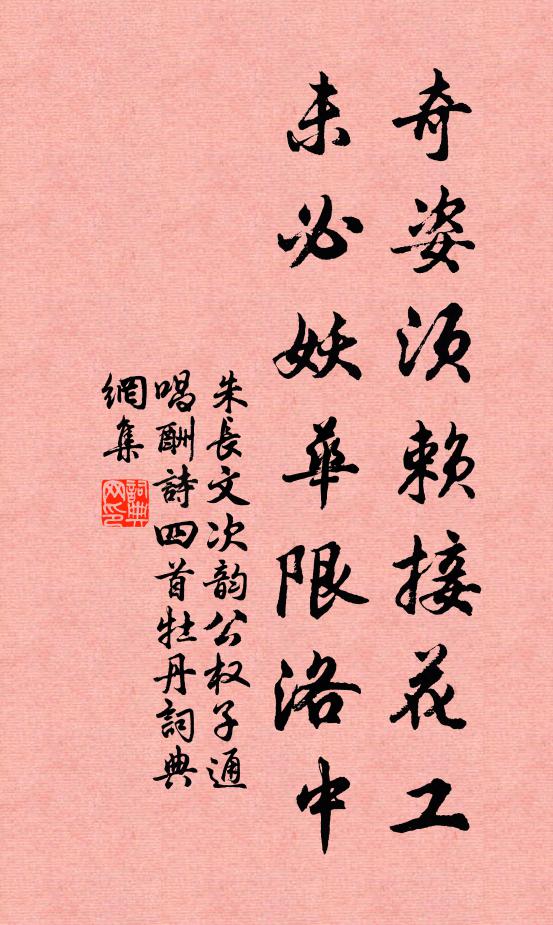 奇姿须赖接花工
未必妖華限洛中
朱長文次韵公权子通
唱酬詩四首牡丹詞典
網集
詞典网印